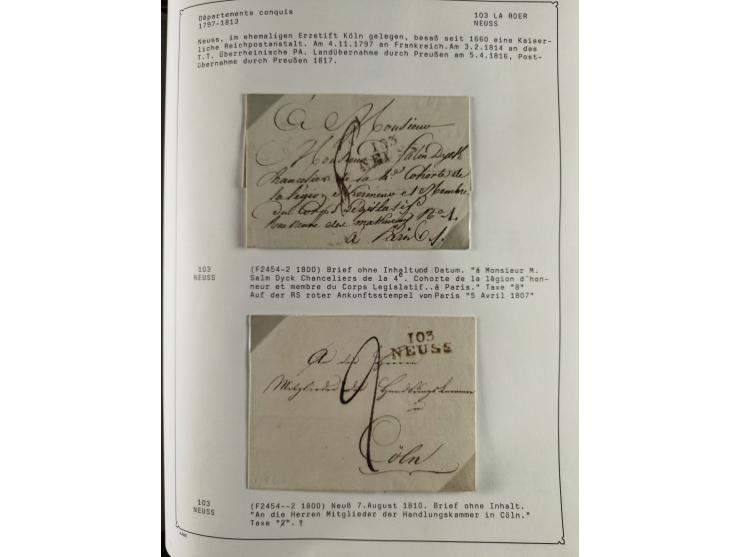 Départements conquis
1797-1813
103 LA ROER
NEUSS
Neuss, im ehemaligen Erzstift Köln gelegen, besaß seit 1660 eine Kaiser-
liche Reichpostanstalt. Am 4.11.1797 an Frankreich.Am 3.2.1814 an das
T.T. Überrheinische PA. Landübernahme durch Preußen am 5.4.1816, Post-
übernahme durch Preußen 1817.
A Monsieur
Monsieur Salm Dyck
Chancelier de la 4e Cohorte de
la légion d'honneur et Membre
du Corps Legislatif
rue No. 1.
a Paris
103
NEUSS
(F2454-2 1800) Brief ohne Inhalt und Datum. "à Monsieur M.
Salm Dyck Chanceliers de la 4°. Cohorte de la légion d'hon-
neur et membre du Corps Legislatif..à Paris." Taxe "8"
Auf der RS roter Ankunftsstempel von Paris "5 Avril 1807"
103
NEUSS
An die Herren
Mitglieder der Handlungskammer
in
Cöln
103
NEUSS
(F2454--2 1800) Neuß 7.August 1810. Brief ohne Inhalt.
"An die Herren Mitglieder der Handlungskammer in Cöln."
Taxe "2". ?